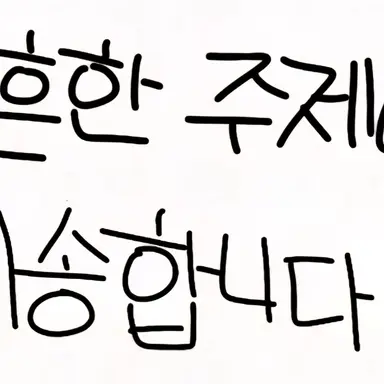 흔한 주제
송합니다